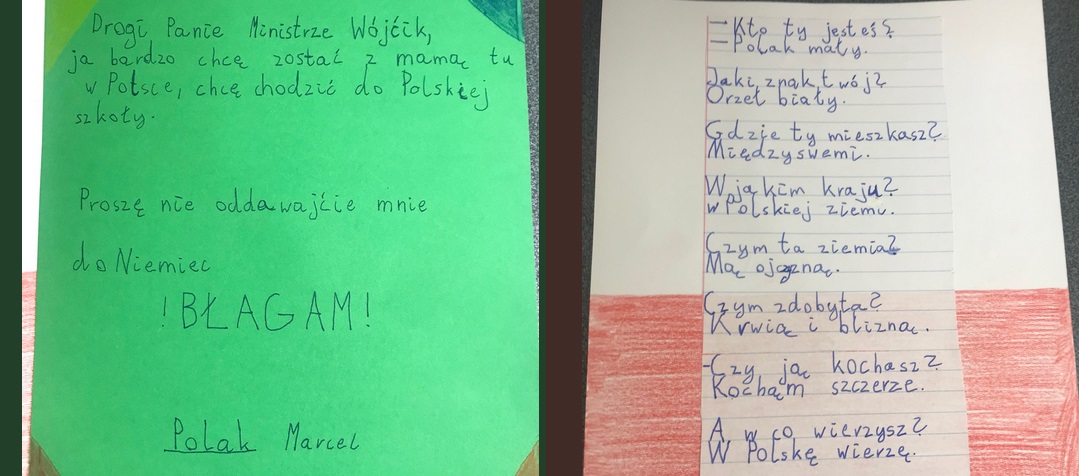 Drogi Panie Ministrze Wójćik,
ja bardzo chcę zostać z mamą tu
w Polsce, chcę chodzić do Polskiej
szkoły.
Proszę nie oddawajćie mnie
do Niemiec
!BŁAGAM!
Polak Marcel
– Kto ty jesteś?
– Polak mały.
Jaki znak twój?
Orzeł biały.
Gdzie ty mieszkasz?
Między swemi.
W jakim kraju?
w Polskiej ziemi.
Czym ta ziemia?
Mą ojczzną.
Czym zdobyta?
Krwią i blizną.
-Czy ją kochasz?
Kochąm szczerze.
A w co wierzysz?
W Polskę wierzę.